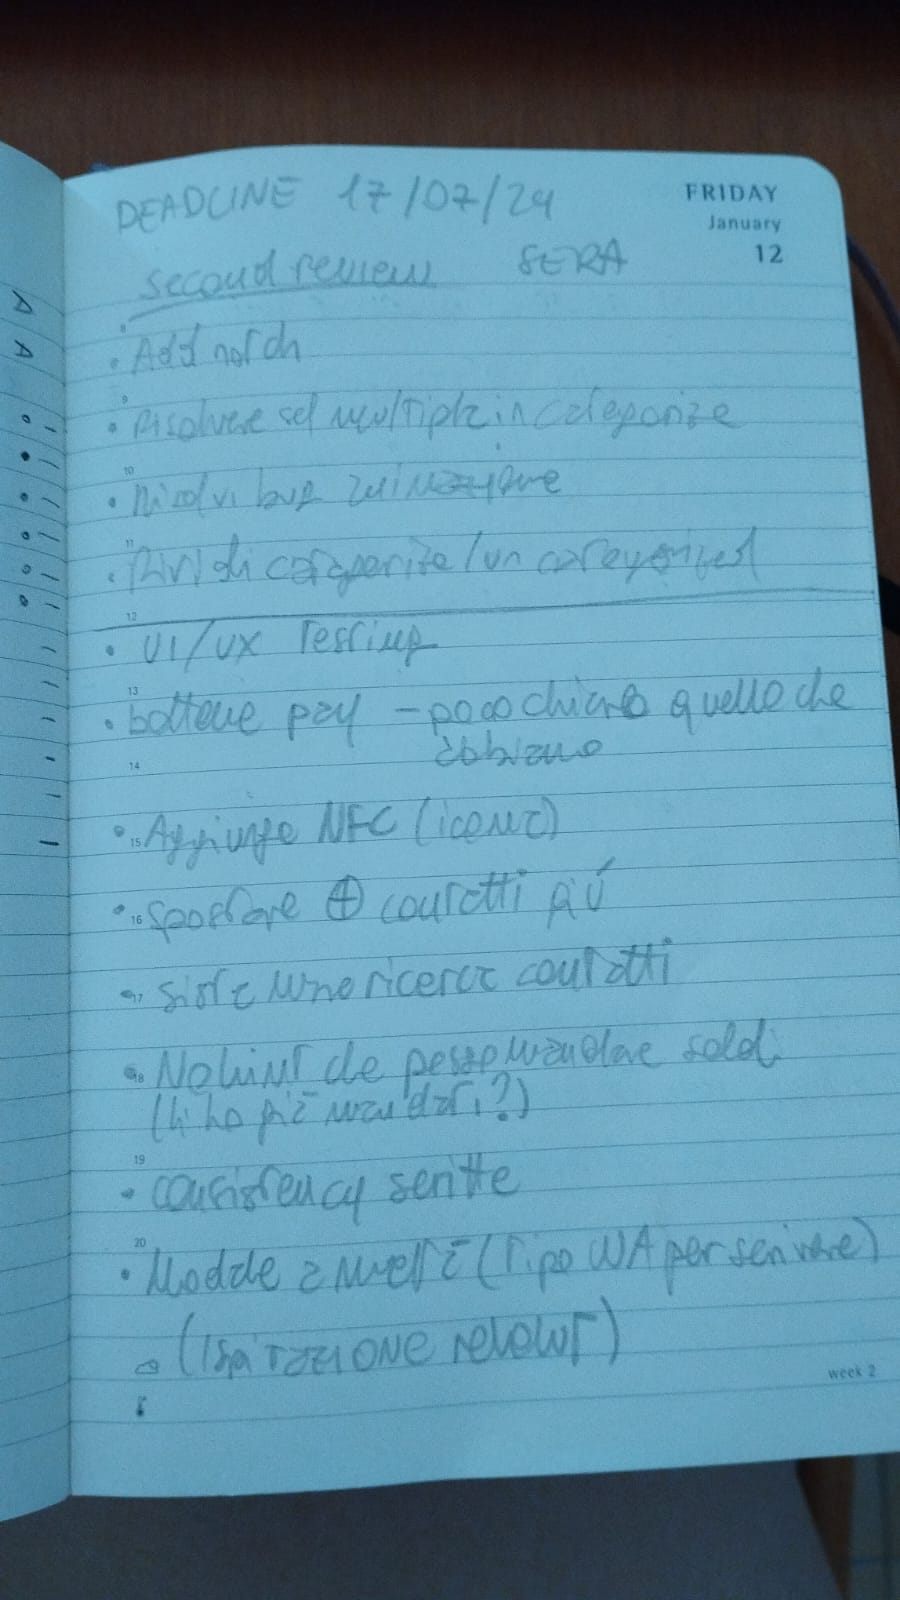 DEADLINE 17/07/24
FRIDAY
January
12
second review SERA
8
• Add notch
9
• Risolvere sel multiple in categorize
10
• Risolvi bug
11
• categorize / un categorized
12
• UI/UX Testing
13
• bottone pay – poco chiaro quello che
abbiamo
14
15
• Aggiunge NFC (icona)
16
• Spostare ⊕ contatti più
17
• contatti
18
soldi
19
• consistency scritte
20
• Modale a metà (Tipo WA per scrivere)
(Ispirazione revolut)
week 2